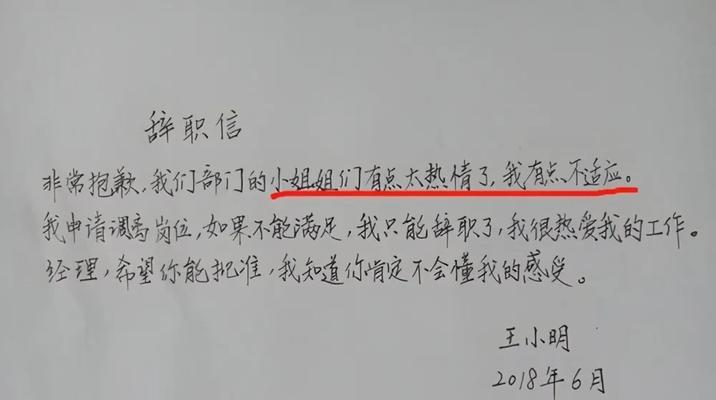 辞职信
非常抱歉，我们部门的小姐姐们有点太热情了，我有点不适应。
我申请调离岗位，如果不能满足，我只能辞职了，我很热爱我的工作。
经理，希望你能批准，我知道你肯定不会懂我的感受。
王小明
2018年6月